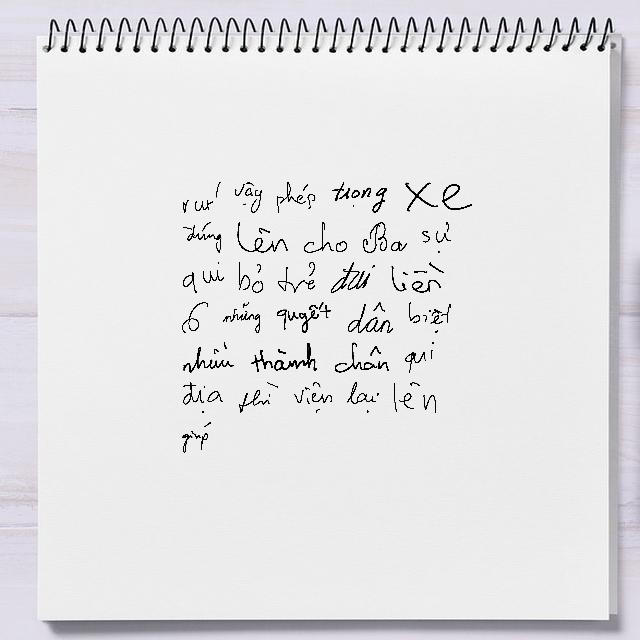 vậy phép trọng xe
đúng lên cho Ba sự
qui bỏ trẻ đui liền
6 những quyết dân biệt
nhiều thành chân qui
địa thì viện lại lên
giúp